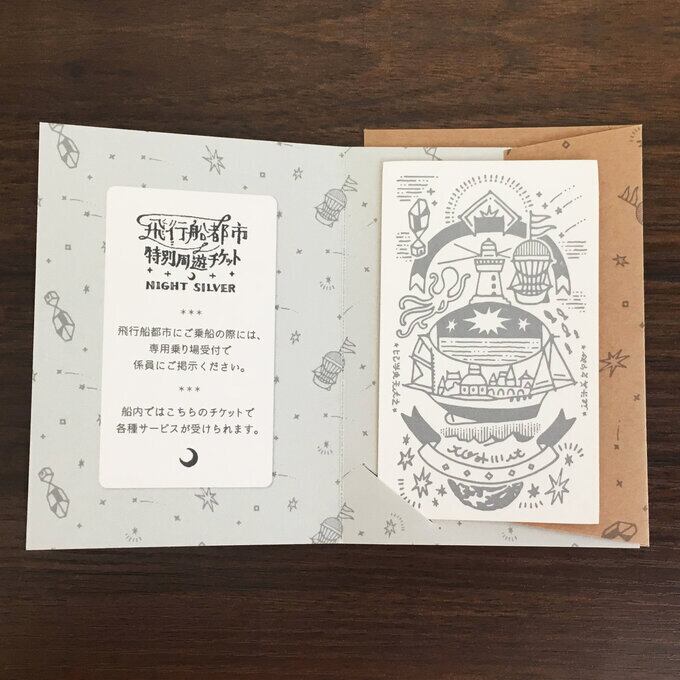 飛行船都市
特別周遊チケット
NIGHT SILVER
***
飛行船都市にご乗船の際には、
専用乗り場受付で
係員にご掲示ください。
***
船内ではこちらのチケットで
各種サービスが受けられます。